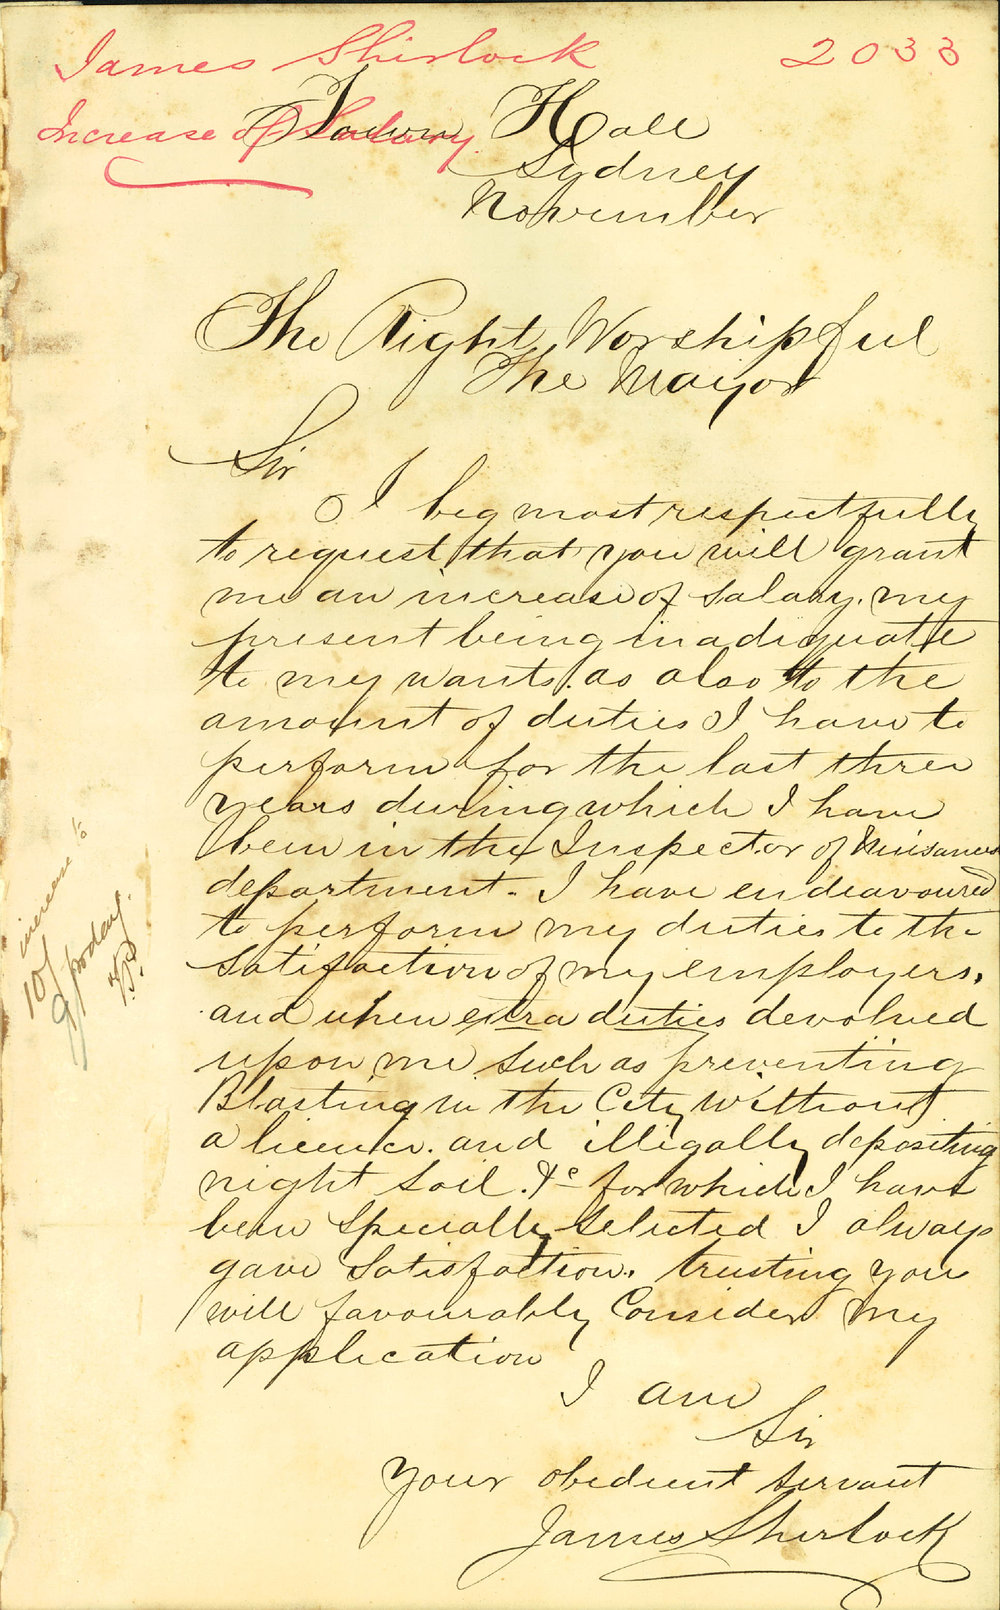 James Shirlock 2033
Increase of Salary
Town Hall
Sydney
November
The Right Worshipful
The Mayor
Sir
I beg most respectfully
to request that you will grant
me an increase of salary. my
present being inadiquate
to my wants. as also to the
amount of duties I have to
perform for the last three
years during which I have
been in the Inspector of Nuisances
department. I have endeavoured
to perform my duties to the
satisfaction of my employers.
and when extra duties devolved
upon me such as preventing
Blasting in the City Without
a licence. and illegally depositing
night soil. &c for which I have
been specially selected I always
gave satisfaction. trusting you
will favourably Consider my
application
I am
Sir
your obedient servant
James Shirlock
10/ increase